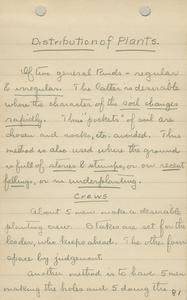 Distribution of Plants.
Of two general kinds - regular
& irregular. The latter is desirable
where the character of the soil changes
rapidly. Thus "pockets" of soil are
chosen and rocks, etc. avoided. This
method is also used where the ground
is full of stones & stumps, or on recent
fellings, or in underplanting.
Crews
About 5 men make a desirable
planting crew. Stakes are set for the
leader, who keeps ahead. The other four
space by judgement.
Another method is to have 5 men
making the holes and 5 doing the
91